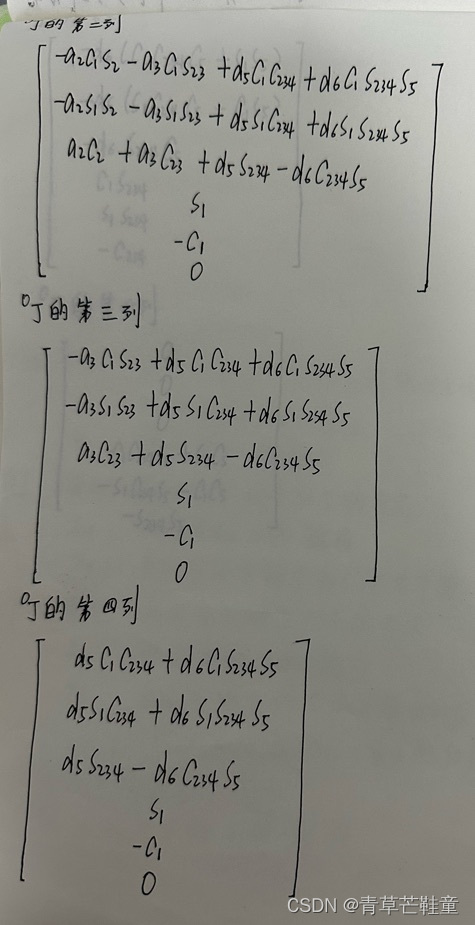 ⁰J的第二列
-a₂C₁S₂ - a₃C₁S₂₃ + d₅C₁C₂₃₄ + d₆C₁S₂₃₄S₅
-a₂S₁S₂ - a₃S₁S₂₃ + d₅S₁C₂₃₄ + d₆S₁S₂₃₄S₅
a₂C₂ + a₃C₂₃ + d₅S₂₃₄ - d₆C₂₃₄S₅
S₁
-C₁
0
⁰J的第三列
-a₃C₁S₂₃ + d₅C₁C₂₃₄ + d₆C₁S₂₃₄S₅
-a₃S₁S₂₃ + d₅S₁C₂₃₄ + d₆S₁S₂₃₄S₅
a₃C₂₃ + d₅S₂₃₄ - d₆C₂₃₄S₅
S₁
-C₁
0
⁰J的第四列
d₅C₁C₂₃₄ + d₆C₁S₂₃₄S₅
d₅S₁C₂₃₄ + d₆S₁S₂₃₄S₅
d₅S₂₃₄ - d₆C₂₃₄S₅
S₁
-C₁
0
CSDN @青草芒鞋童